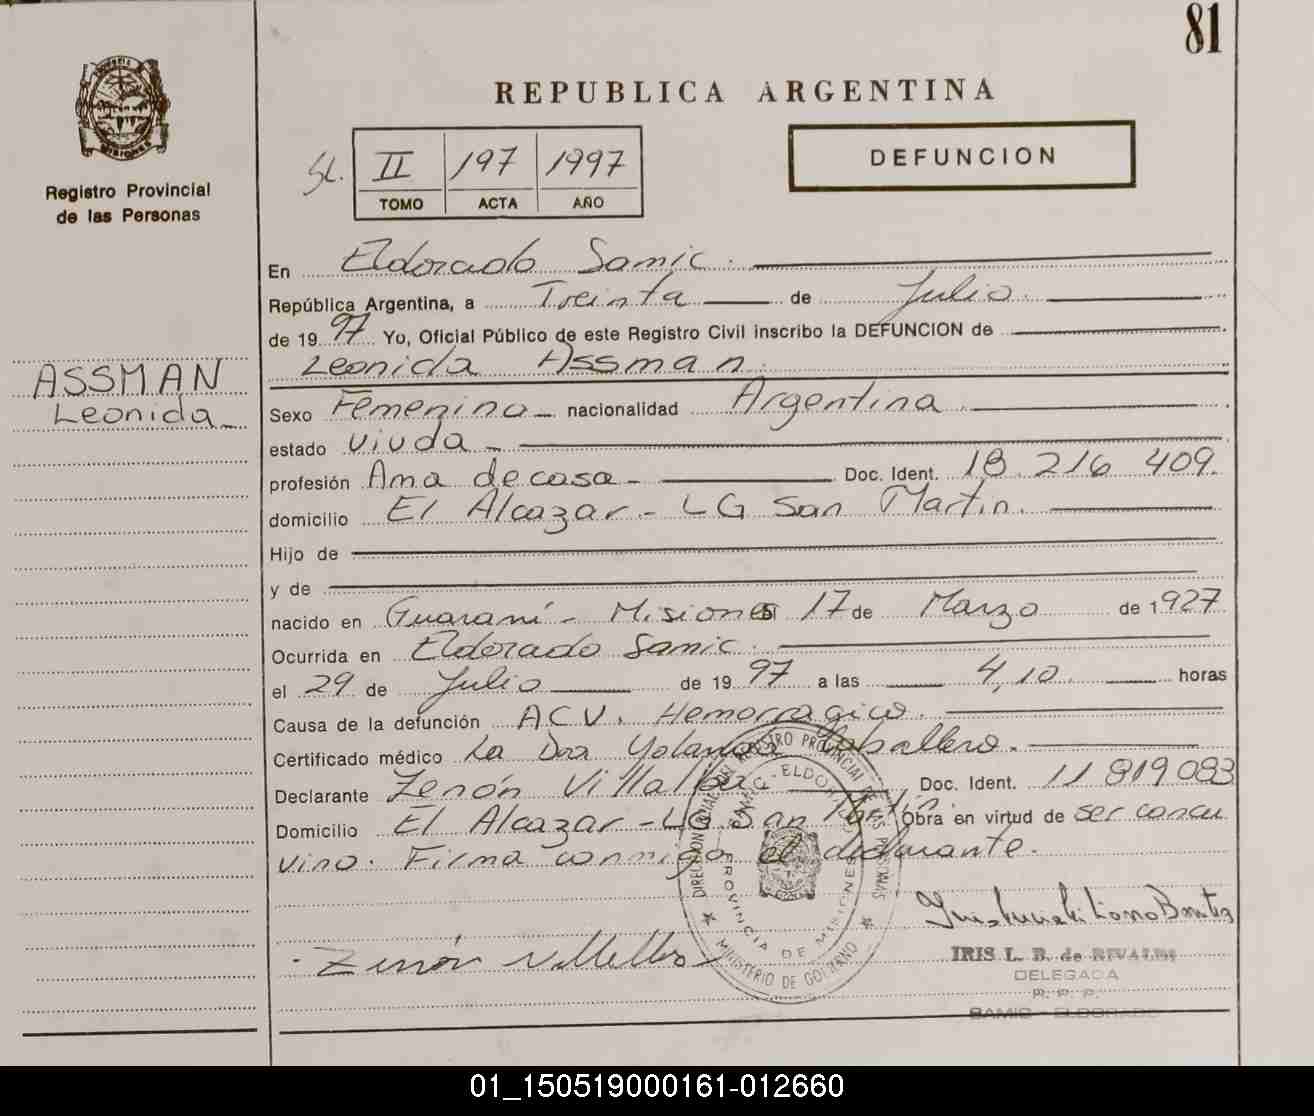 81
REPUBLICA ARGENTINA
DEFUNCION
MISIONES
Registro Provincial
de las Personas
II 197 1997
TOMO ACTA AÑO
ASSMAN
Leonida
En Eldorado Samic.
República Argentina, a Treinta de Julio.
de 1997 Yo, Oficial Público de este Registro Civil inscribo la DEFUNCION de
Leonida Assman.
Sexo Femenino nacionalidad Argentina.
estado viuda
profesión Ama de casa Doc. Ident. 18.216 409.
domicilio El Alcazar - LG San Martin.
Hijo de
y de
nacido en Guaraní - Misiones el 17 de Marzo de 1927
Ocurrida en Eldorado Samic.
el 29 de Julio de 1997 a las 4,10 horas
Causa de la defunción ACV. Hemorragico.
Certificado médico La Dra Yolanda Caballero.
Declarante Zenón Villalba Doc. Ident. 11 819 083
Domicilio El Alcazar - LG San Martin Obra en virtud de ser concu
vino. Firma conmigo el declarante.
DIRECCION GRAL. DEL REGISTRO PROVINCIAL DE LAS PERSONAS
SAMIC - ELDORADO
PROVINCIA DE MISIONES
MINISTERIO DE GOBIERNO
Zenón Villalba
IRIS L. B. de RIVALDI
DELEGADA
R. P. P.
SAMIC - ELDORADO
01_150519000161-012660